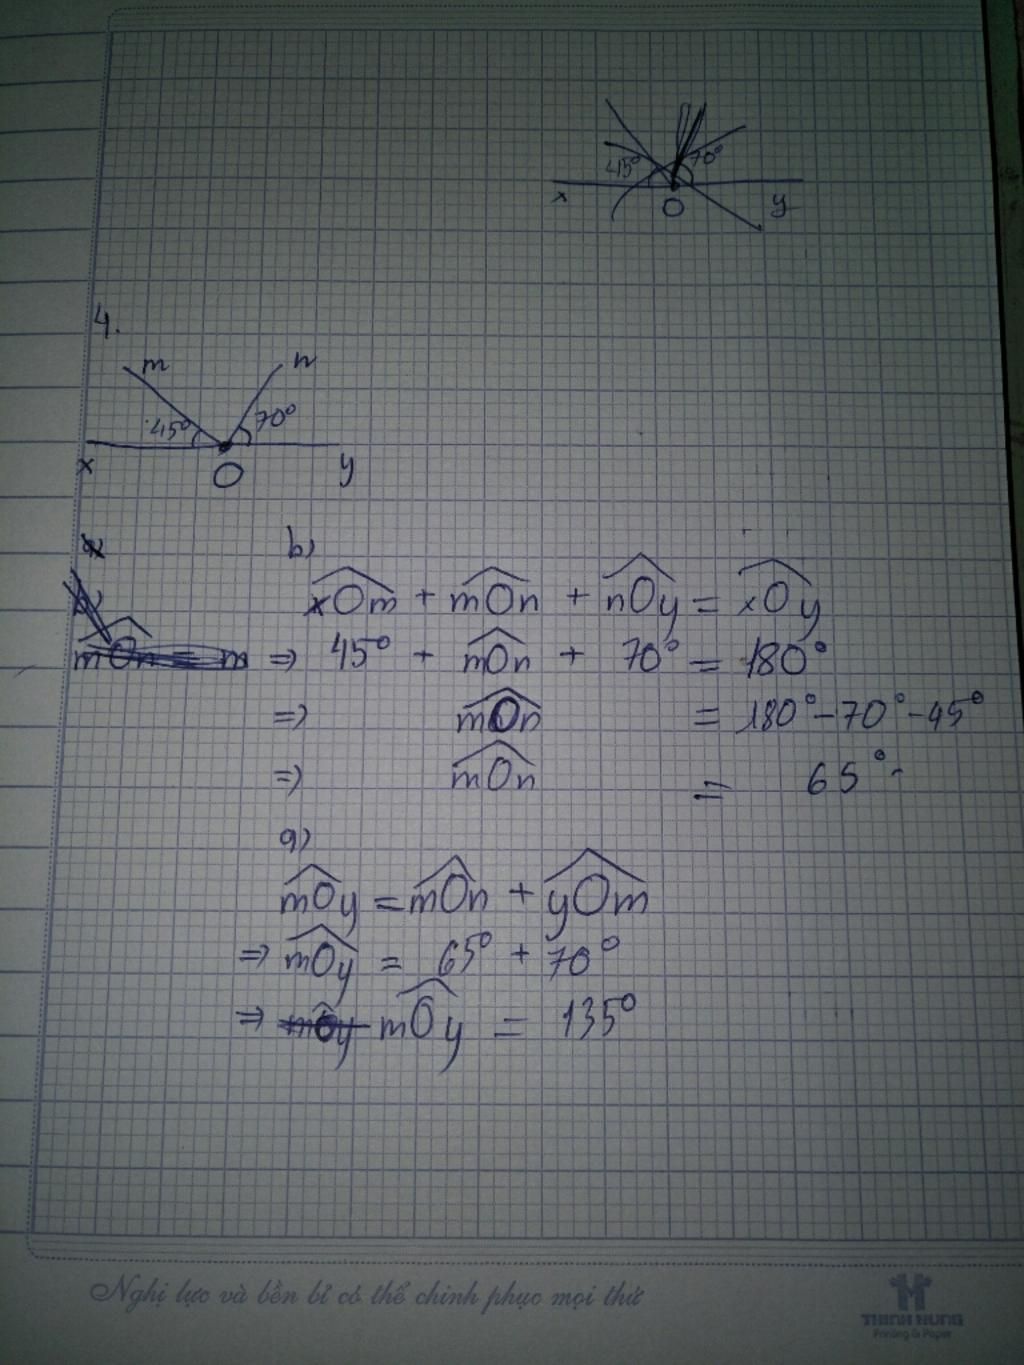 45° 70°
x O y
4.
m n
45° 70°
x O y
b)
xOm + mOn + nOy = xOy
mOn = m => 45° + mOn + 70° = 180°
=> mOn = 180° - 70° - 45°
=> mOn = 65°
a)
mOy = mOn + yOm
=> mOy = 65° + 70°
=> mOy mOy = 135°
Nghị lực và bền bỉ có thể chinh phục mọi thứ
THINH HUNG
Printing & Paper